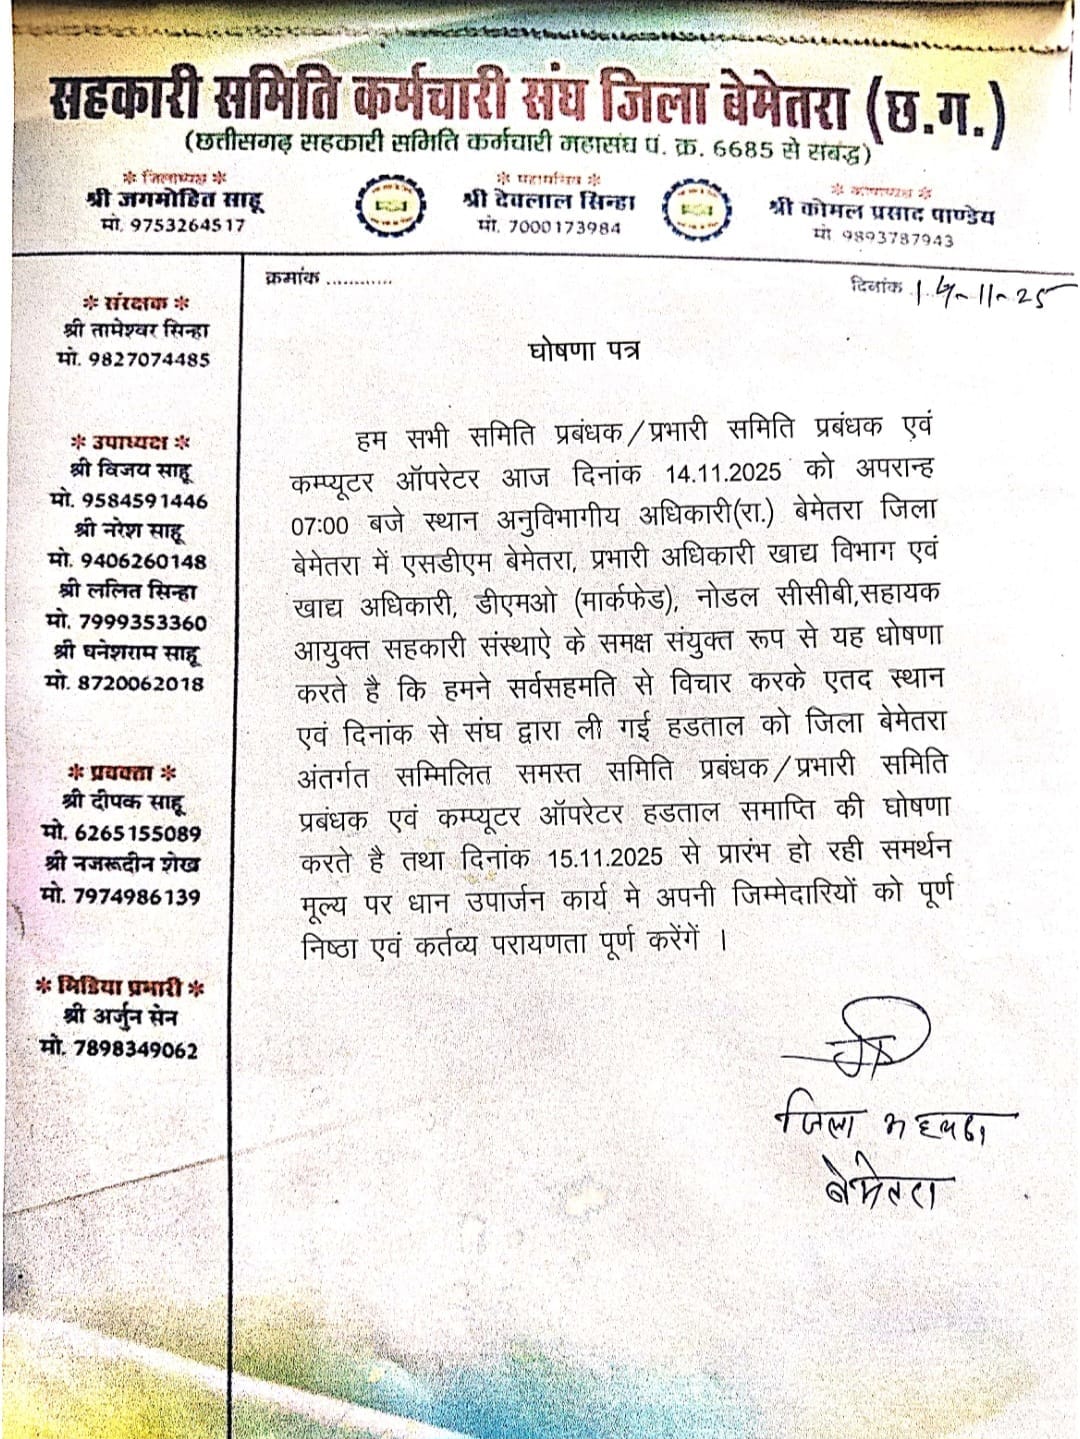 सहकारी समिति कर्मचारी संघ जिला बेमेतरा (छ.ग.)
(छत्तीसगढ़ सहकारी समिति कर्मचारी महासंघ पं. क्र. 6685 से सबंद्ध)
* जिलाध्यक्ष *
श्री जगमोहित साहू
मो. 9753264517
* महासचिव *
श्री देवलाल सिन्हा
मो. 7000173984
* कोषाध्यक्ष *
श्री कोमल प्रसाद पाण्डेय
मो 9893787943
क्रमांक ............
दिनांक 14-11-25
* संरक्षक *
श्री तामेश्वर सिन्हा
मो. 9827074485
* उपाध्यक्ष *
श्री विजय साहू
मो. 9584591446
श्री नरेश साहू
मो. 9406260148
श्री ललित सिन्हा
मो. 7999353360
श्री घनेशराम साहू
मो. 8720062018
* प्रवक्ता *
श्री दीपक साहू
मो. 6265155089
श्री नजरूदीन शेख
मो. 7974986139
* मिडिया प्रभारी *
श्री अर्जुन सेन
मो. 7898349062
घोषणा पत्र
हम सभी समिति प्रबंधक/प्रभारी समिति प्रबंधक एवं
कम्प्यूटर ऑपरेटर आज दिनांक 14.11.2025 को अपरान्ह
07:00 बजे स्थान अनुविभागीय अधिकारी(रा.) बेमेतरा जिला
बेमेतरा में एसडीएम बेमेतरा, प्रभारी अधिकारी खाद्य विभाग एवं
खाद्य अधिकारी, डीएमओ (मार्कफेड), नोडल सीसीबी,सहायक
आयुक्त सहकारी संस्थाऐ के समक्ष संयुक्त रूप से यह घोषणा
करते है कि हमने सर्वसहमति से विचार करके एतद स्थान
एवं दिनांक से संघ द्वारा ली गई हडताल को जिला बेमेतरा
अंतर्गत सम्मिलित समस्त समिति प्रबंधक/प्रभारी समिति
प्रबंधक एवं कम्प्यूटर ऑपरेटर हडताल समाप्ति की घोषणा
करते है तथा दिनांक 15.11.2025 से प्रारंभ हो रही समर्थन
मूल्य पर धान उपार्जन कार्य मे अपनी जिम्मेदारियों को पूर्ण
निष्ठा एवं कर्तव्य परायणता पूर्ण करेंगें ।
जिला अध्यक्ष
बेमेतरा